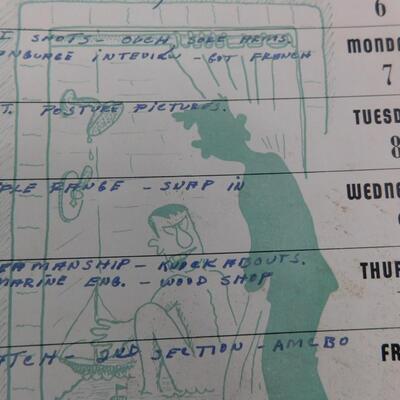 6
I SHOTS - OUCH, SORE ARMS.
MONDA
ANGUAGE INTEVIEW - GOT FRENCH
7
T. POSTURE PICTURES.
TUESD
8
RANGE - SNAP IN
WEDNE
EAMANSHIP - KNOCKABOUTS.
THUR
MARINE ENG. - WOOD SHOP
ATCH - 2ND SECTION - AMCBO
FR